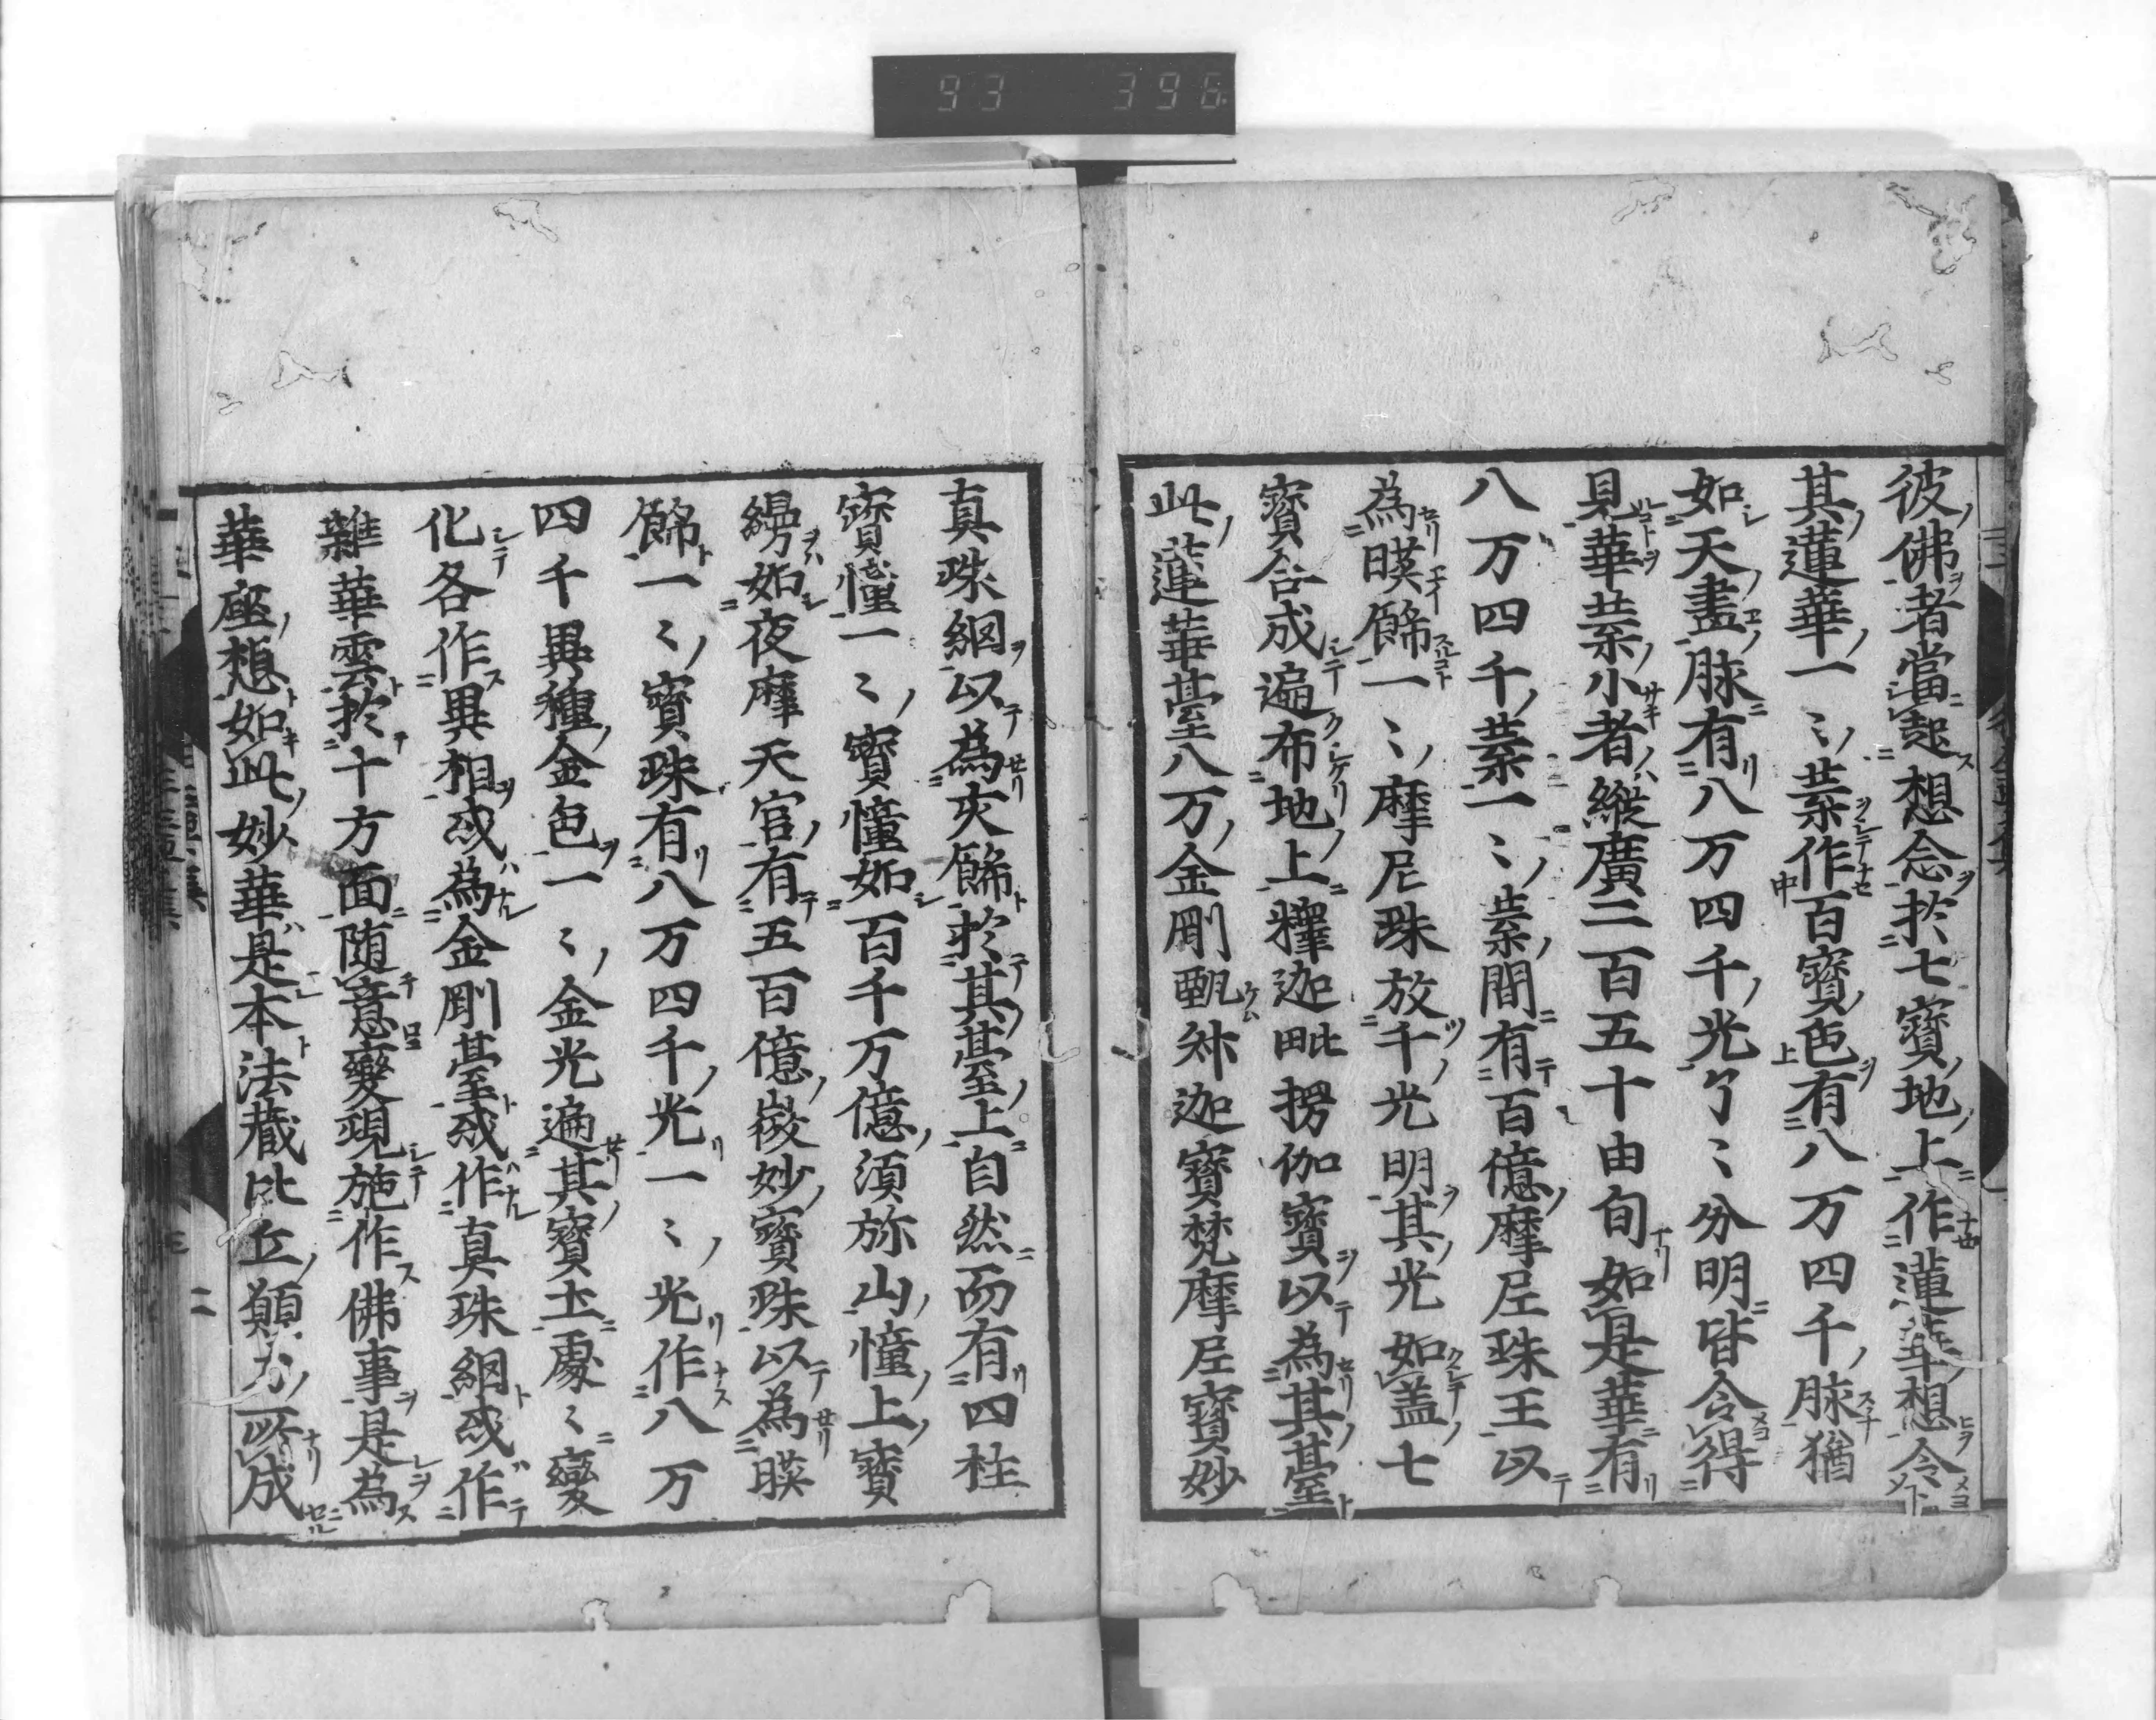 93 396
彼佛者當起想念於七寶地上作蓮華想令
其蓮華一〻葉作百寶色有八万四千脉猶
如天畫脉有八万四千光了〻分明皆令得
見華葉小者縱廣二百五十由旬如是華有
八万四千葉一〻葉間有百億摩尼珠王以
為暎餝一〻摩尼珠放千光明其光如盖七
寶合成遍布地上釋迦毗楞伽寶以為其臺
此蓮華臺八万金剛甄叔迦寶梵摩尼寶妙
真珠網以為交餝於其臺上自然而有四柱
寶幢一〻寶幢如百千万億須弥山幢上寶
縵如夜摩天宮有五百億㣲妙寶珠以為暎
餝一〻寶珠有八万四千光一〻光作八万
四千異種金色一〻金光遍其寶土處〻變
化各作異相或為金剛臺或作真珠網或作
雜華雲於十方面随意變現施作佛事是為
華座想如此妙華是本法藏比丘願力所成